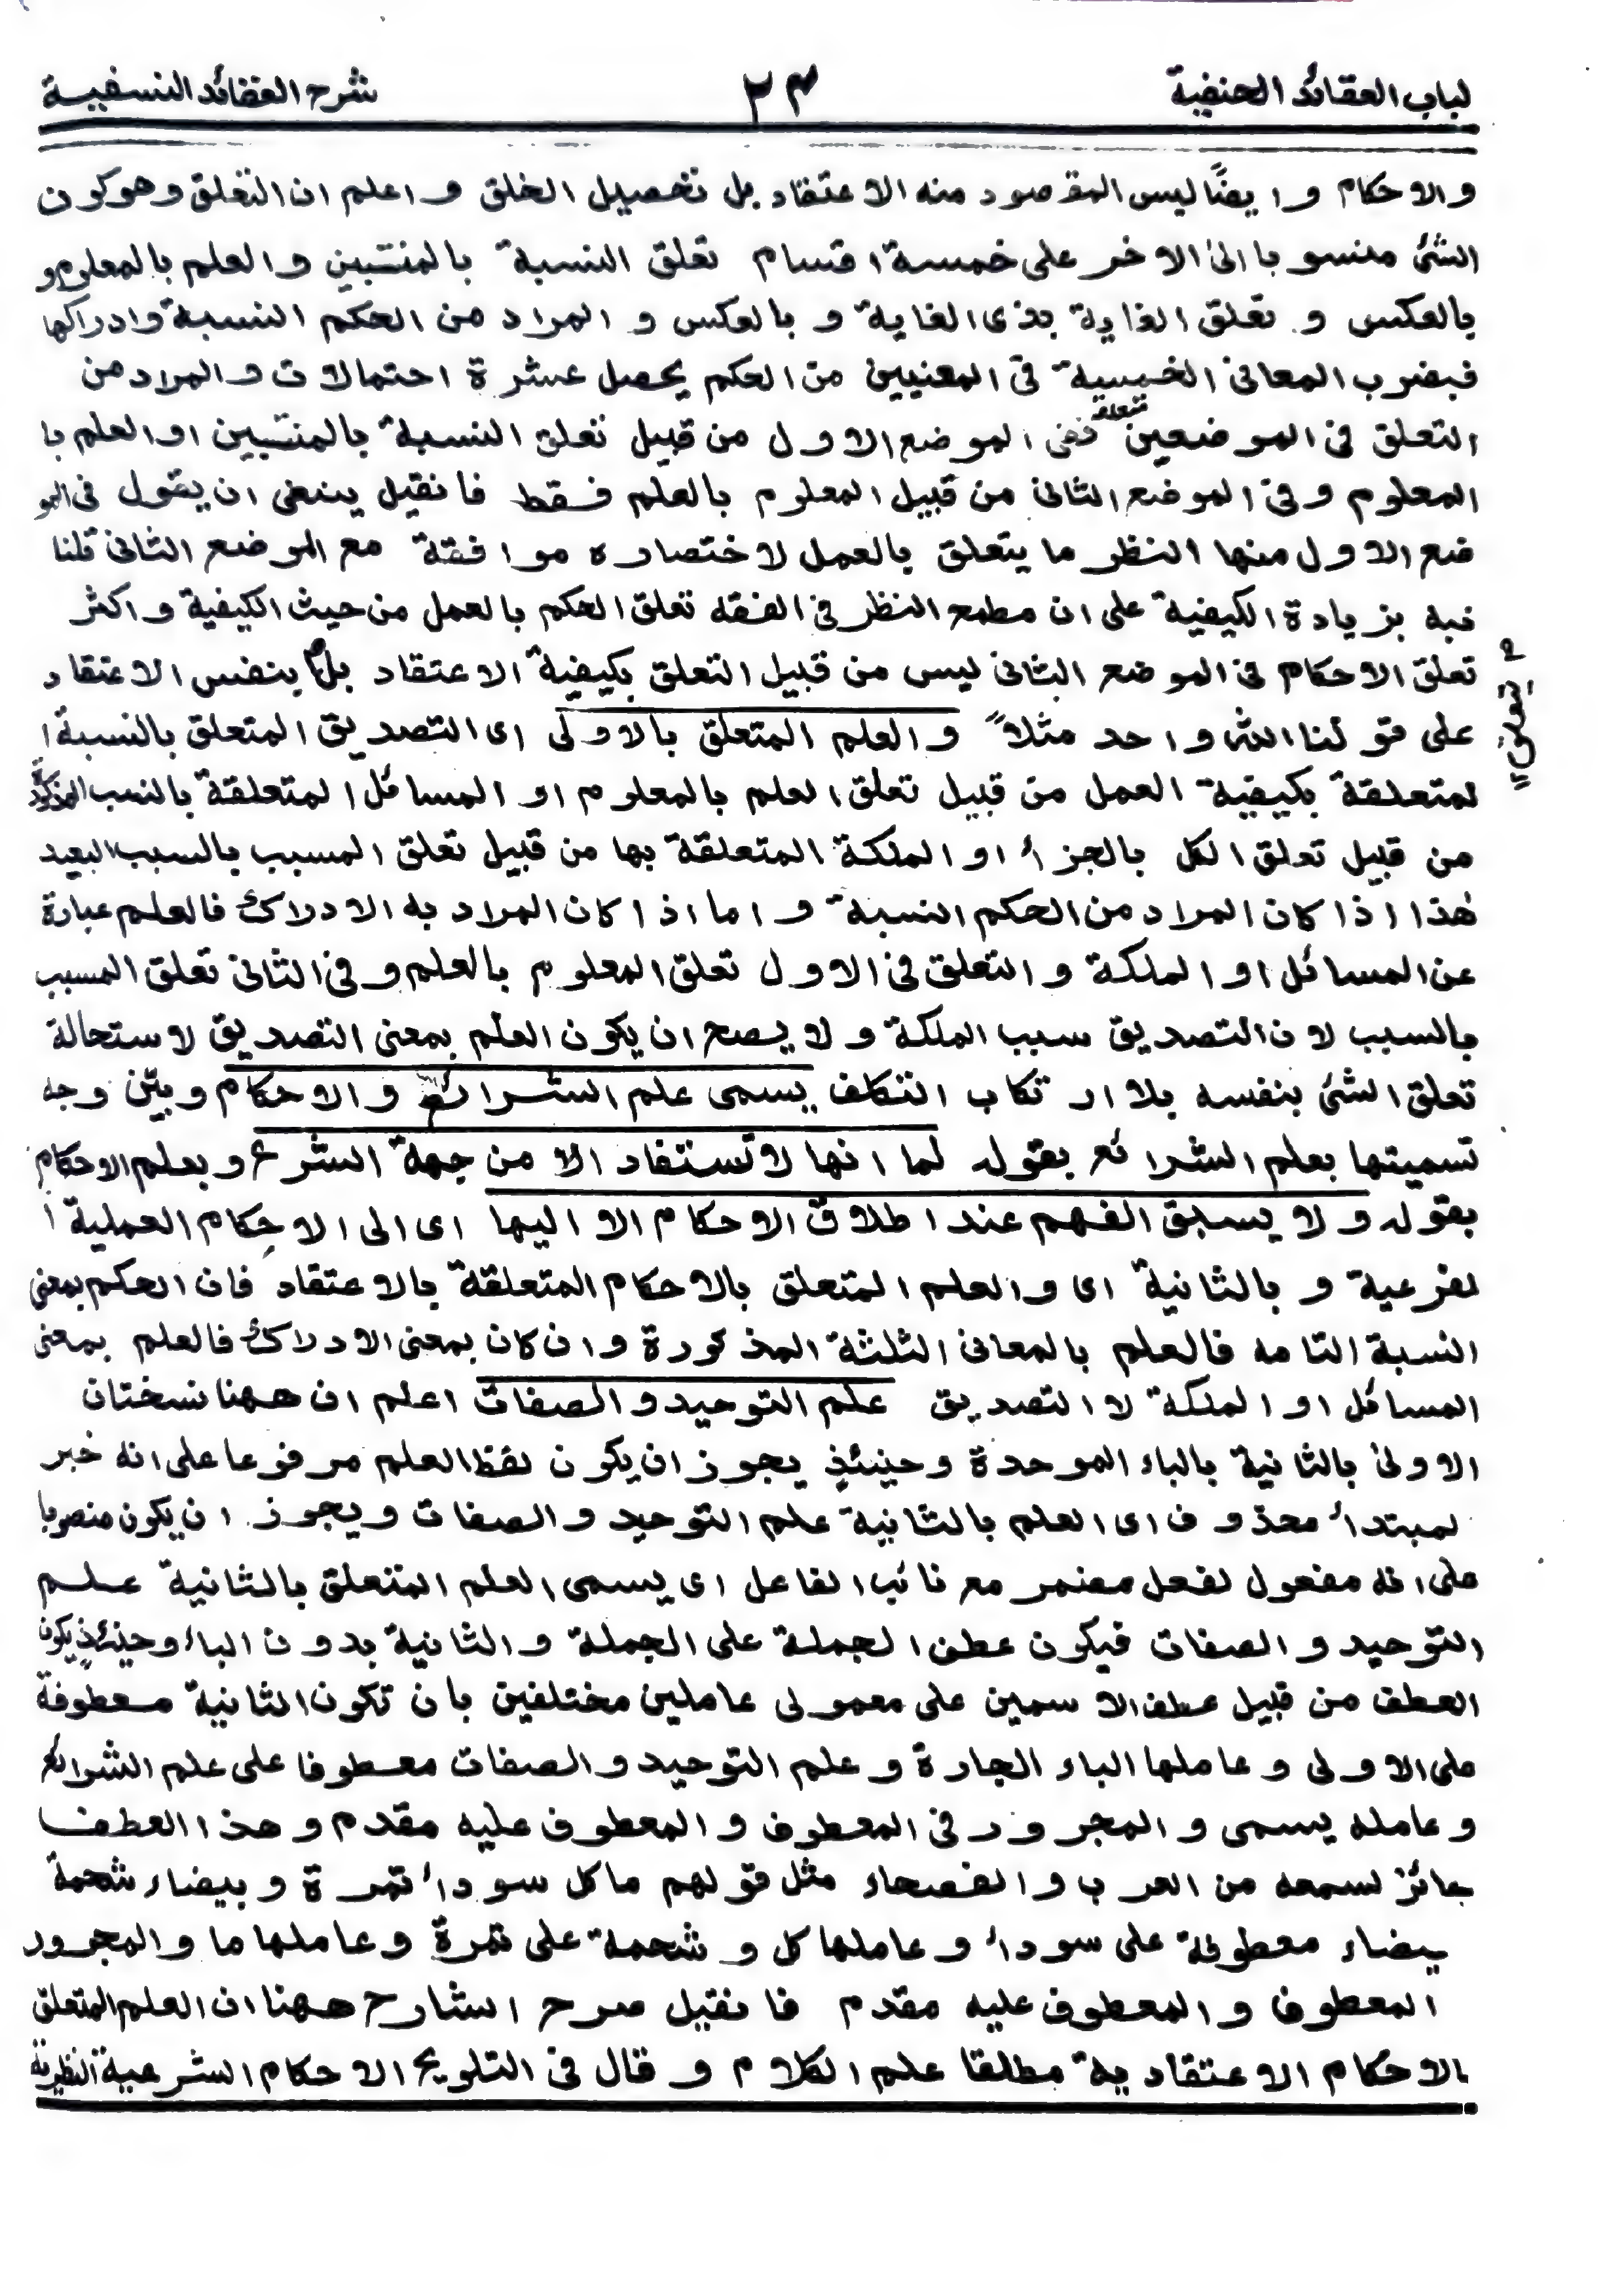 لباب العقائد الحنفية ٢٣ شرح العقائد النسفية
والاحكام وايضًا ليس المقصود منه الاعتقاد بل تحصيل الخلق واعلم ان التعلق وهو كون
الشئ منسوبا الى الاخر على خمسة اقسام تعلق النسبة بالمنتسبين والعلم بالمعلوم و
بالعكس و تعلق الغاية بذى الغاية و بالعكس و المراد من الحكم النسبة وادراكها
فبضرب المعانى الخمسة فى المعنيين من الحكم يحصل عشرة احتمالات والمراد من
التعلق فى الموضعين تعلق ففى الموضع الاول من قبيل تعلق النسبة بالمنتسبين او العلم با
المعلوم وفى الموضع الثانى من قبيل المعلوم بالعلم فقط فان قيل ينبغى ان يقول فى المو
ضع الاول منها النظر ما يتعلق بالعمل لاختصاره موافقة مع الموضع الثانى قلنا
نبه بزيادة الكيفية على ان مطمح النظر فى الفقه تعلق الحكم بالعمل من حيث الكيفية واكثر
تعلق الاحكام فى الموضع الثانى ليس من قبيل التعلق بكيفية الاعتقاد بل بنفس الاعتقاد
على قولنا الله واحد مثلاً والعلم المتعلق بالاولى اى التصديق المتعلق بالنسبة ا
لمتعلقة بكيفية العمل من قبيل تعلق العلم بالمعلوم او المسائل المتعلقة بالنسب المذكورة
من قبيل تعلق الكل بالجزأ او الملكة المتعلقة بها من قبيل تعلق المسبب بالسبب البعيد
هٰذا اذا كان المراد من الحكم النسبة واما اذا كان المراد به الادراك فالعلم عبارة
عن المسائل او الملكة والتعلق فى الاول تعلق المعلوم بالعلم وفى الثانى تعلق المسبب
بالسبب لان التصديق سبب الملكة ولا يصح ان يكون العلم بمعنى التصديق لاستحالة
تعلق الشئ بنفسه بلا ارتكاب التكلف يسمى علم الشرائع والاحكام وبيّن وجه
تسميتها بعلم الشرائع بقوله لما انها لا تستفاد الا من جهة الشرع وبعلم الاحكام
بقوله ولا يسبق الفهم عند اطلاق الاحكام الا اليها اى الى الاحكام العملية ا
لفرعية و بالثانية اى والعلم المتعلق بالاحكام المتعلقة بالاعتقاد فان الحكم بمعنى
النسبة التامه فالعلم بالمعانى الثلثة المذكورة وان كان بمعنى الادراك فالعلم بمعنى
المسائل او الملكة لا التصديق علم التوحيد والصفات اعلم ان ههنا نسختان
الاولى بالثانية بالباء الموحدة وحينئذٍ يجوز ان يكون لفظ العلم مرفوعا على انه خبر
لمبتدأ محذوف اى العلم بالثانية علم التوحيد والصفات ويجوز ان يكون منصوبا
على انه مفعول لفعل مضمر مع نائب الفاعل اى يسمى العلم المتعلق بالثانية علم
التوحيد والصفات فيكون عطف الجملة على الجملة والثانية بدون الباء وحينئذٍ يكون
العطف من قبيل عطف الاسمين على معمولى عاملين مختلفين بان تكون الثانية معطوفة
على الاولى وعاملها الباء الجارة وعلم التوحيد والصفات معطوفا على علم الشرائع
وعامله يسمى والمجرور فى المعطوف والمعطوف عليه مقدم وهذا العطف
جائز لسمعه من العرب والفصحاء مثل قولهم ما كل سوداء تمرة وبيضاء شحمة
بيضاء معطوفة على سوداء وعاملها كل وشحمة على تمرة وعاملها ما والمجرور
المعطوف والمعطوف عليه مقدم فان قيل صرح الشارح ههنا ان العلم المتعلق
بالاحكام الاعتقادية مطلقا علم الكلام وقال فى التلويح الاحكام الشرعية النظرية